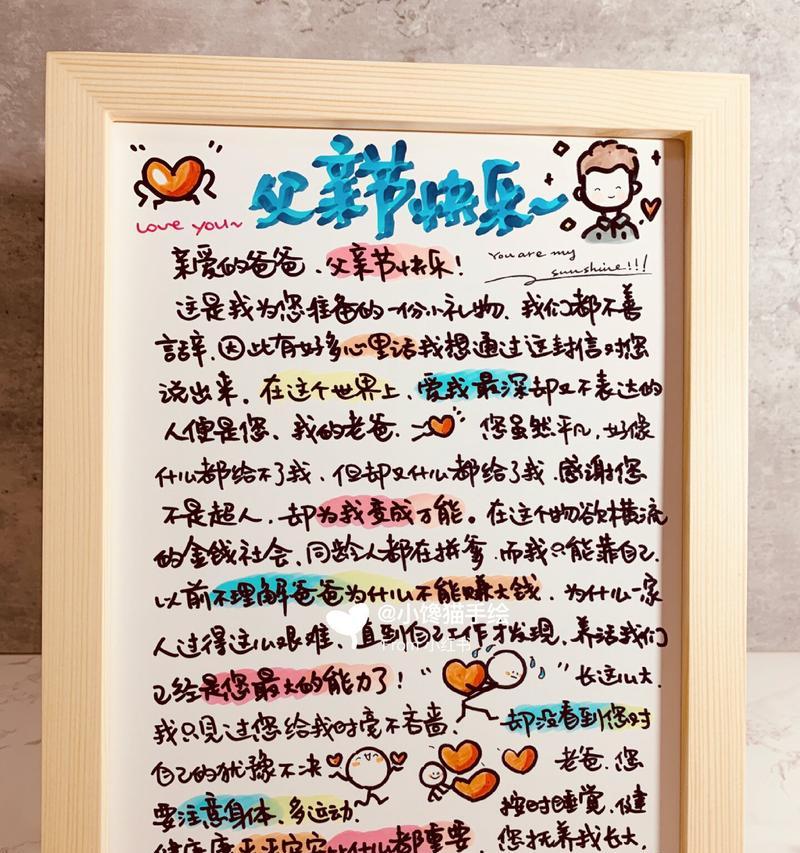 父亲节快乐~
Love you~
亲爱的爸爸、父亲节快乐!
You are my
sunshine!!!
这是我为您准备的一份小礼物、我们都不善
言辞、因此有好多心里话我想通过这封信对您
说出来。在这个世界上、爱我最深却又不表达的
人便是您、我的老爸、
您虽然平凡、好像
什么都给不了我、但却又什么都给了我、感谢您
不是超人、却为我变成万能。在这个物欲横流
的金钱社会、同龄人都在拼爹、而我只能靠自己、
以前不理解爸爸为什么不能赚大钱、为什么一家
人过得这么艰难、直到自己工作才发现、养活我们
已经是您最大的能力了!
长这么大、
我只见过您给我时毫不吝啬、
却没看到您对
自己的犹豫不决
老爸、您
要注意身体、多运动、
按时睡觉、健
健康康平平安安比什么都重要、
您抚养我长大、
@小馋猫手绘
From 小红书